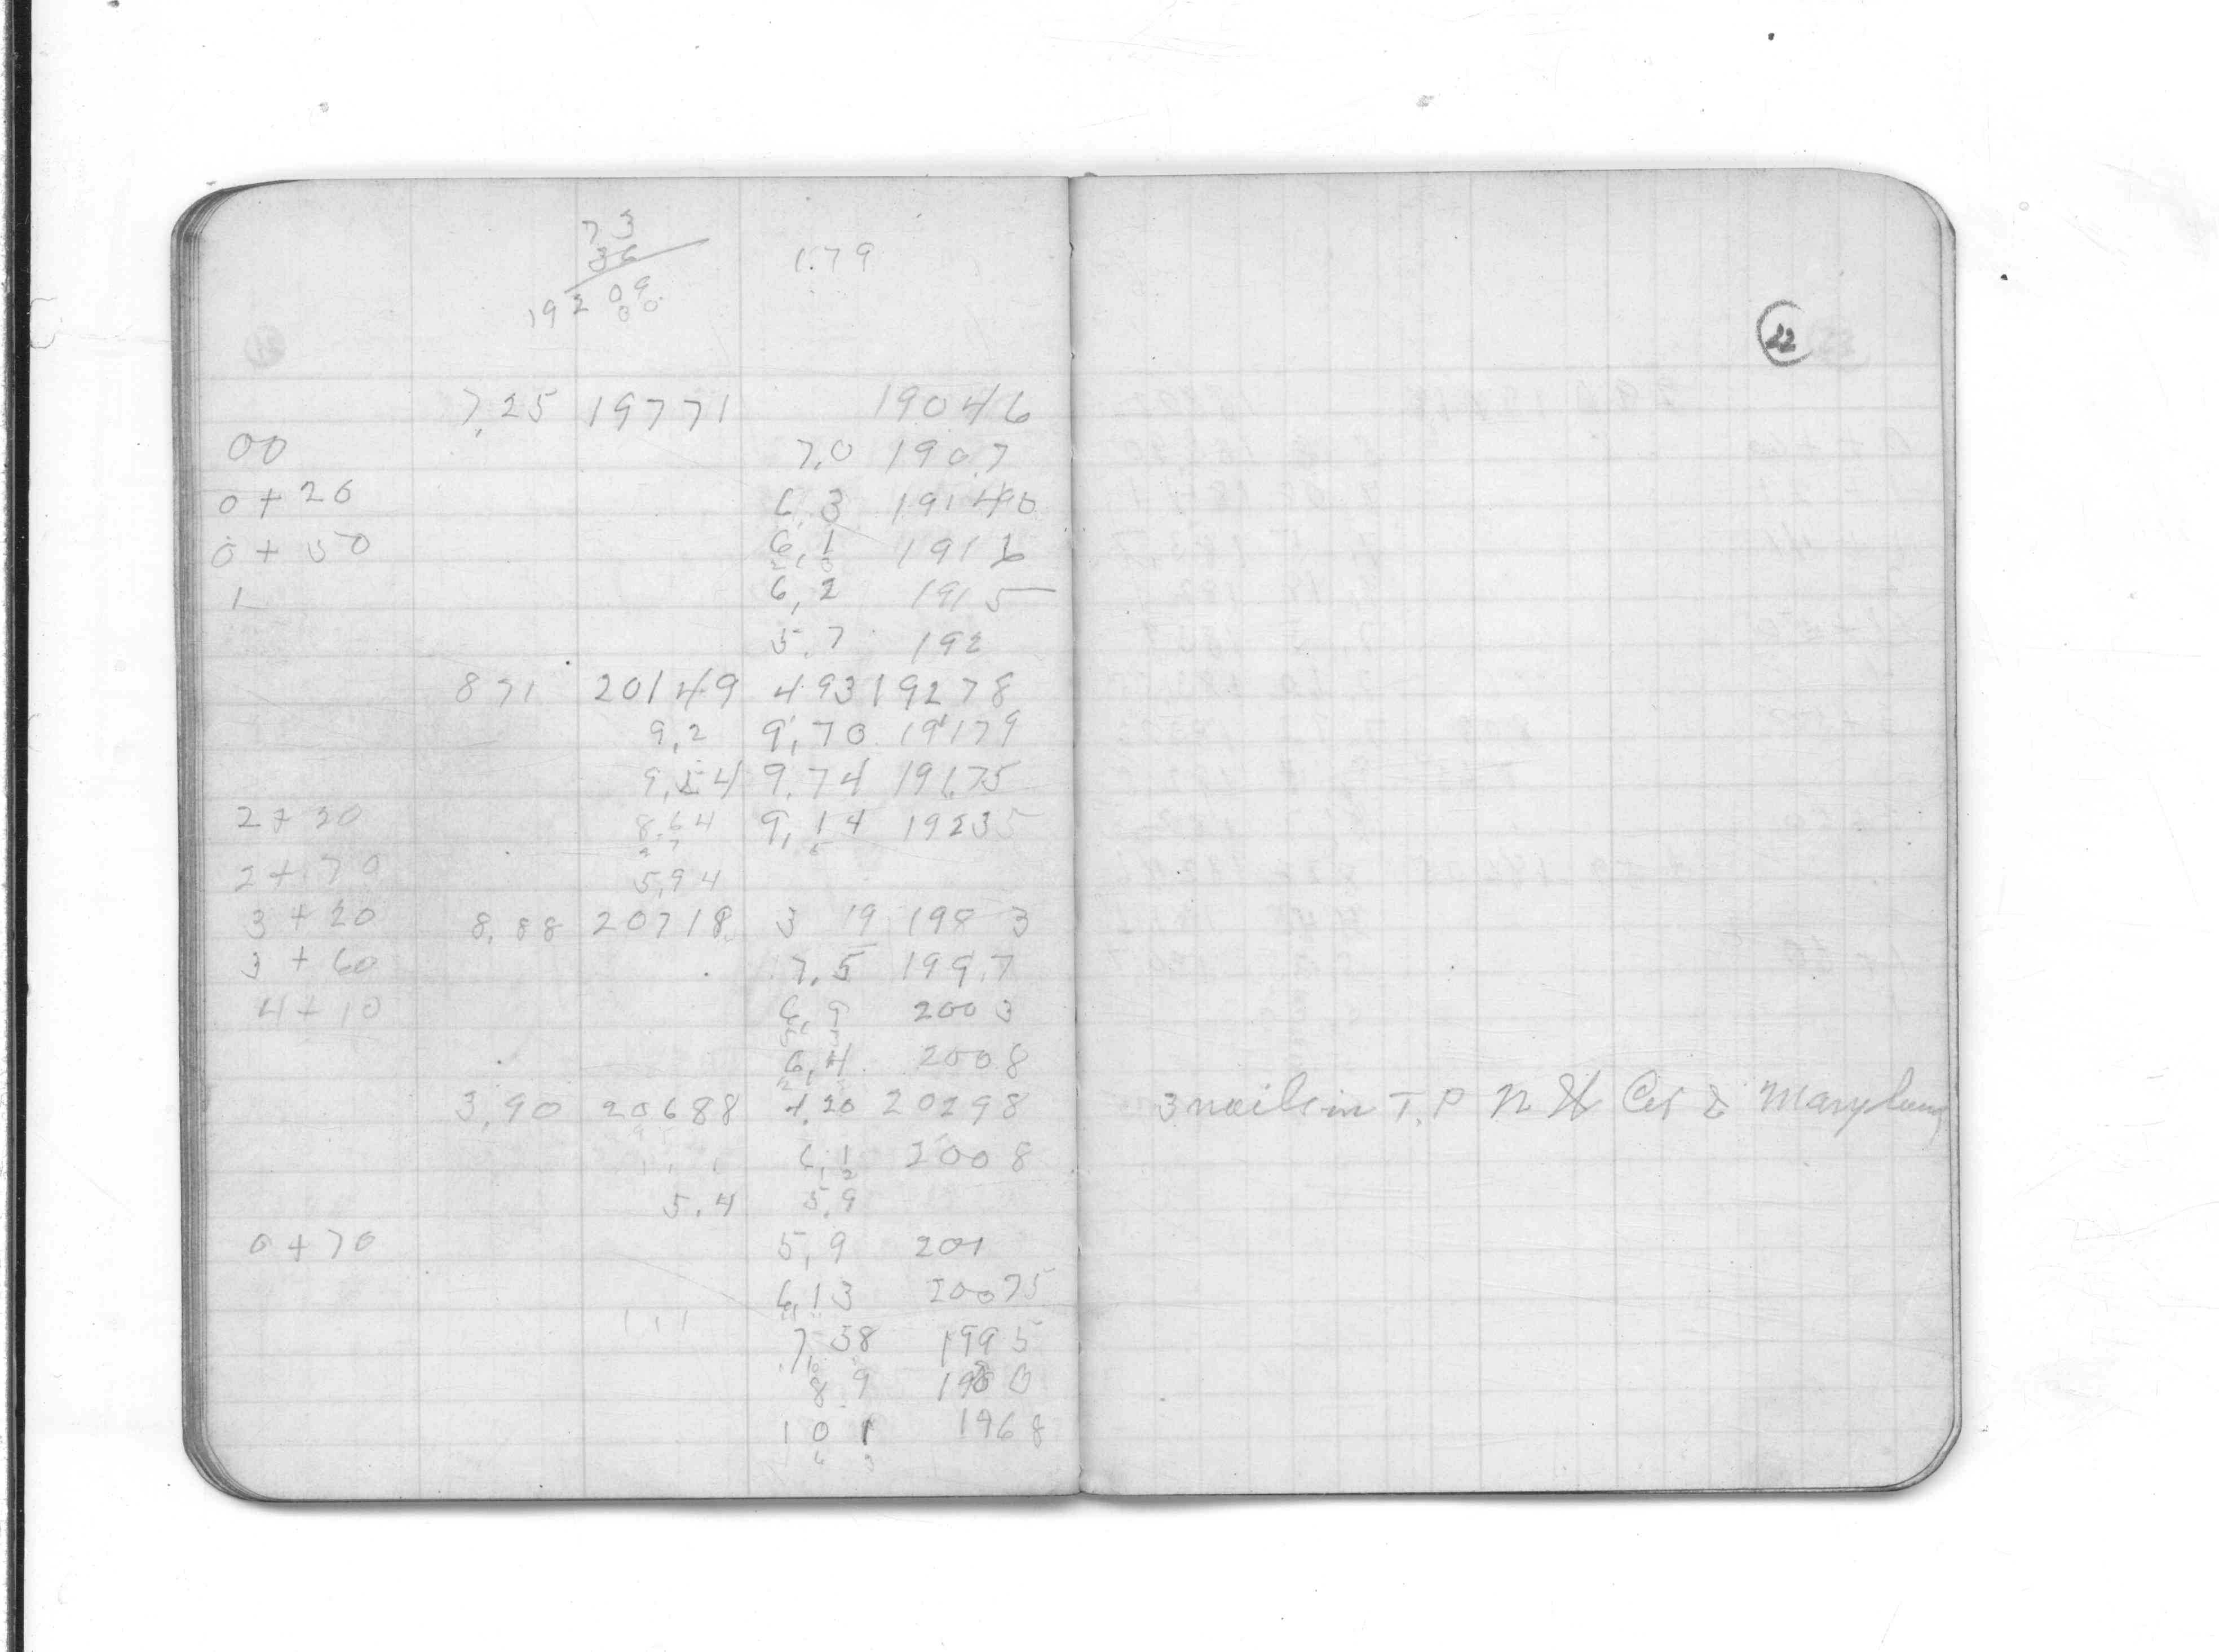 73
36
1.79
19209
00
22
7.25 19771 19046
00 7.0 190.7
0+20 6.3 191.40
0+50 6.1 1916
1 6.2 1915
5.7 192
871 20149 4.93 19278
9.2 9.70 19179
9.54 9.74 19175
2+30 8.64 9.14 19235
2+70 5.94
3+20 8.88 20718 3 19 198 3
3+60 7.5 199.7
4+10 6.9 2003
6.4 2008
3.90 20688 4.20 20298 3 nails in T.P N &
6.1 2008
5.4 5.9
0+70 5.9 201
6.13 20075
7 58 1995
8 9 1980
10 1 1968